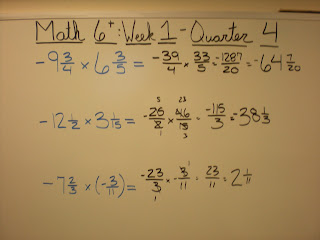 Math 6+: Week 1 - Quarter 4
-9 3/4 × 6 3/5 = -39/4 × 33/5 = -1287/20 = -64 7/20
-12 1/2 × 3 1/15 = 5 -25/2 1 × 23 46/15 3 = -115/3 = -38 1/3
-7 2/3 × (-3/11) = -23/3 1 × -3 1/11 = 23/11 = 2 1/11